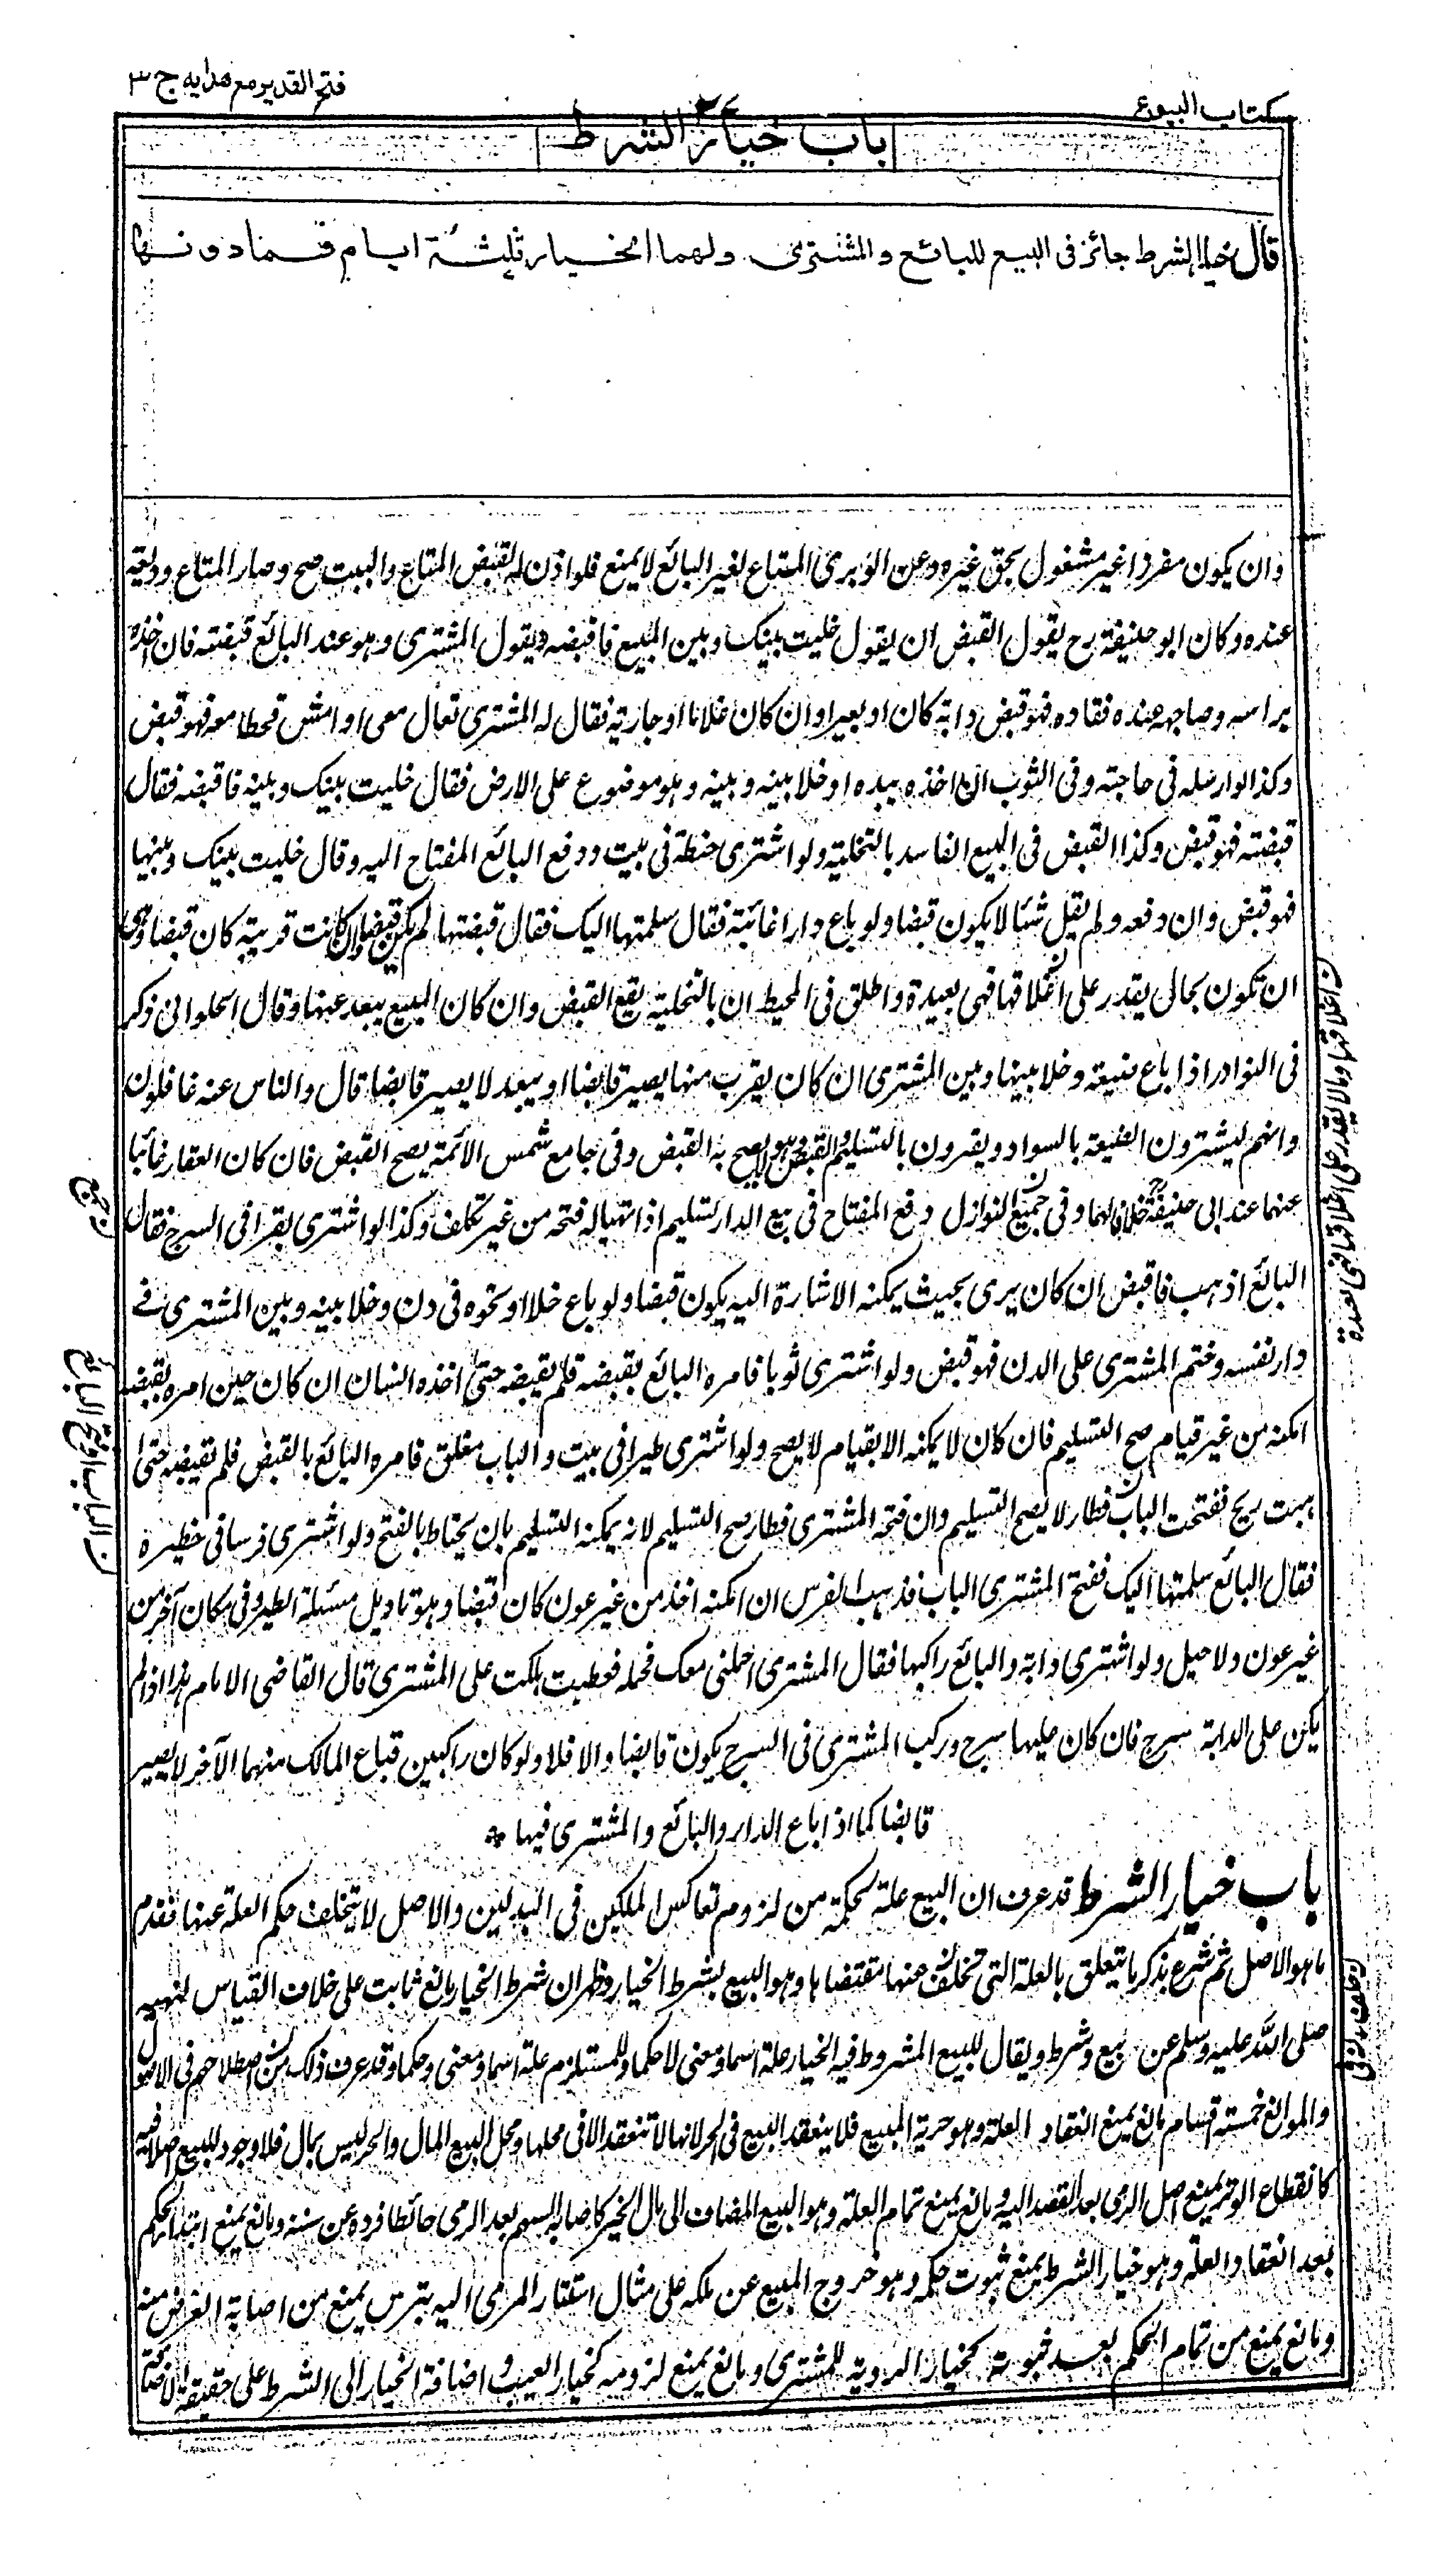 كتاب البيوع
فتح القدير مع هدايه ج ٣
باب خيار الشرط
قال خيار الشرط جائز فى البيع للبائع والمشترى ولهما الخيار ثلثة ايام فما دونها
وان يكون مفرزا غير مشغول بحق غيره وعن الوبرى المتاع لغير البائع لا يمنع فلو اذن له بقبض المتاع والبيت صح وصار المتاع وديعة
عنده وكان ابو حنيفة رح يقول القبض ان يقول خليت بينك وبين المبيع فاقبضه ويقول المشترى وهو عند البائع قبضته فان اخذه
براسه وصاحبه عنده فقاده فهو قبض دابة كان او بعيرا وان كان غلاما او جارية فقال له المشترى تعال معى او امش فخطا معه فهو قبض
وكذا لو ارسله فى حاجته وفى الثوب ان اخذه بيده او خلا بينه وبينه وهو موضوع على الارض فقال خليت بينك وبينه فاقبضه فقال
قبضته فهو قبض وكذا القبض فى البيع الفاسد بالتخلية ولو اشترى حنطة فى بيت ودفع البائع المفتاح اليه وقال خليت بينك وبينها
فهو قبض وان دفعه ولم يقل شئا لا يكون قبضا ولو باع دارا غائبة فقال سلمتها اليك فقال قبضتها لم يكن قبضا وان كانت قريبة كان قبضا وهى
ان تكون بحال يقدر على اغلاقها فهى بعيدة واطلق فى المحيط ان بالتخلية يقع القبض وان كان المبيع يبعد عنها وقال الحلوانى ذكر
فى النوادر اذا باع ضيعة وخلا بينها وبين المشترى ان كان يقرب منها يصير قابضا او يبعد لا يصير قابضا قال والناس عنه غافلون
وانهم يشترون الضيعة بالسواد ويقرون بالتسليم والقبض وهو لا يصح به القبض وفى جامع شمس الائمة يصح القبض فان كان العقار غائبا
عنهما عند ابى حنيفة خلافا لهما وفى جميع النوازل دفع المفتاح فى بيع الدار تسليم اذا تهيا له فتحه من غير تكلف وكذا لو اشترى بقرا فى السرح فقال
البائع اذهب فاقبض ان كان يرى بحيث يمكنه الاشارة اليه يكون قبضا ولو باع خلا او نحوه فى دن وخلا بينه وبين المشترى فى
دار نفسه وختم المشترى على الدن فهو قبض ولو اشترى ثوبا فامره البائع بقبضه فلم يقبضه حتى اخذه انسان ان كان حين امره بقبضه
امكنه من غير قيام صح التسليم فان كان لا يمكنه الا بقيام لا يصح ولو اشترى طيرا فى بيت والباب مغلق فامره البائع بالقبض فلم يقبضه حتى
هبت ريح ففتحت الباب فطار لا يصح التسليم وان فتحه المشترى فطار صح التسليم لانه يمكنه التسليم بان يحتاط بالفتح ولو اشترى فرسا فى حظيرة
فقال البائع سلمتها اليك ففتح المشترى الباب فذهب الفرس ان امكنه اخذ من غير عون كان قبضا وهو تاويل مسئلة الطير وفى مكان آخر من
غير عون ولا حبل ولو اشترى دابة والبائع راكبها فقال المشترى احملنى معك فحمله فعطبت هلكت على المشترى قال القاضى الامام هذا اذا لم
يكن على الدابة سرج فان كان عليها سرج وركب المشترى فى السرج يكون قابضا والا فلا ولو كان راكبين فباع المالك منهما الآخر لا يصير
قابضا كما اذا باع الدار والبائع والمشترى فيها *
باب خيار الشرط قد عرف ان البيع علة لحكمه من لزوم تعاكس الملكين فى البدلين والاصل لا يتخلف حكم العلة عنها فقدم
ما هو الاصل ثم شرع بذكر ما يتعلق بالعلة التى تخلف عنها مقتضاها وهو البيع بشرط الخيار وظهر ان شرط الخيار مانع ثابت على خلاف القياس لنهيه
صلى الله عليه وسلم عن بيع وشرط ويقال للبيع المشروط فيه الخيار علة اسما ومعنى لا حكما وللمستلزم علة اسما ومعنى وحكما وقد عرف ذلك من اصطلاحهم فى الاصول
والموانع خمسة اقسام مانع يمنع انعقاد العلة وهو حرية المبيع فلا ينعقد البيع فى الحر لانها لا تنعقد الا فى محلها ومحل البيع المال والحر ليس بمال فلا وجود للبيع اصلا فيه
كانقطاع الوتر يمنع اصل الرمى بعد القصد اليه ومانع يمنع تمام العلة وهو البيع المضاف الى مال الغير كاصابة السهم بعد الرمى حائطا فرده عن سننه ومانع يمنع ابتداء الحكم
بعد انعقاد العلة وهو خيار الشرط يمنع ثبوت حكمه وهو خروج المبيع عن ملكه على مثال استتار المرمى اليه بترس يمنع من اصابة الغرض منه
ومانع يمنع من تمام الحكم بعد ثبوته كخيار الروية للمشترى ومانع يمنع لزومه كخيار العيب واضافة الخيار الى الشرط على حقيقة
ن الباب افتح البائع